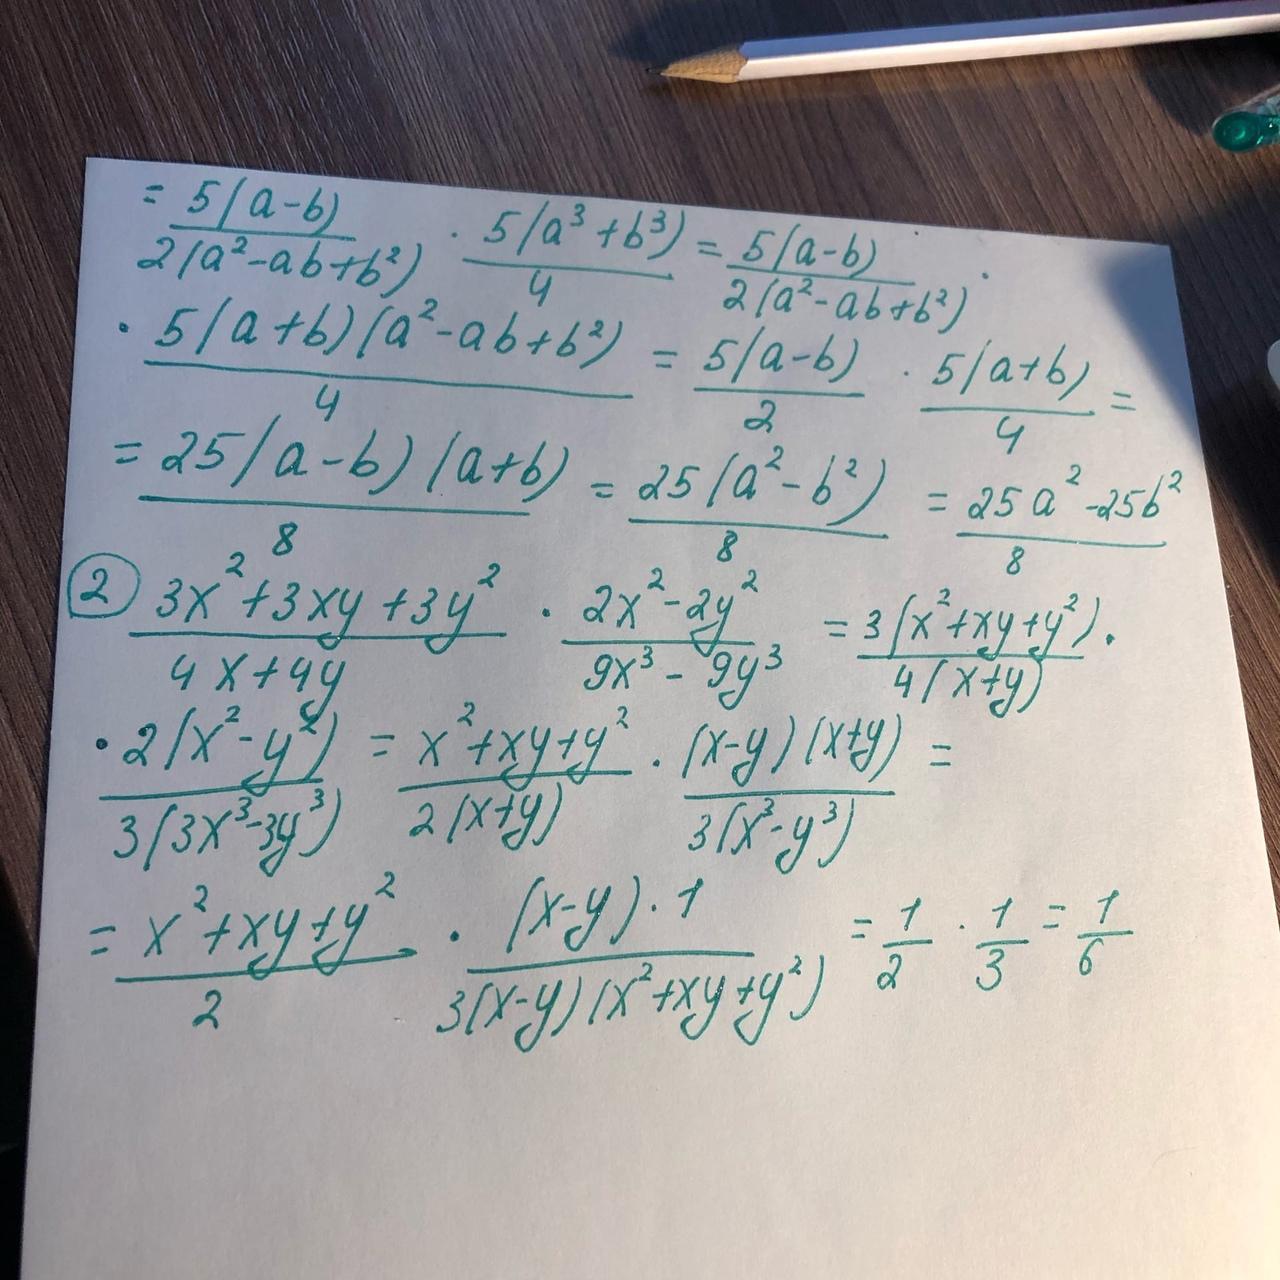 = 5(a-b)/2(a²-ab+b²) · 5(a³+b³)/4 = 5(a-b)/2(a²-ab+b²) ·
· 5(a+b)(a²-ab+b²)/4 = 5(a-b)/2 · 5(a+b)/4 =
= 25(a-b)(a+b)/8 = 25(a²-b²)/8 = 25a²-25b²/8
② 3x²+3xy+3y²/4x+4y · 2x²-2y²/9x³-9y³ = 3(x²+xy+y²)/4(x+y) ·
· 2(x²-y²)/3(3x³-3y³) = x²+xy+y²/2(x+y) · (x-y)(x+y)/3(x³-y³) =
= x²+xy+y²/2 · (x-y)·1/3(x-y)(x²+xy+y²) = 1/2 · 1/3 = 1/6